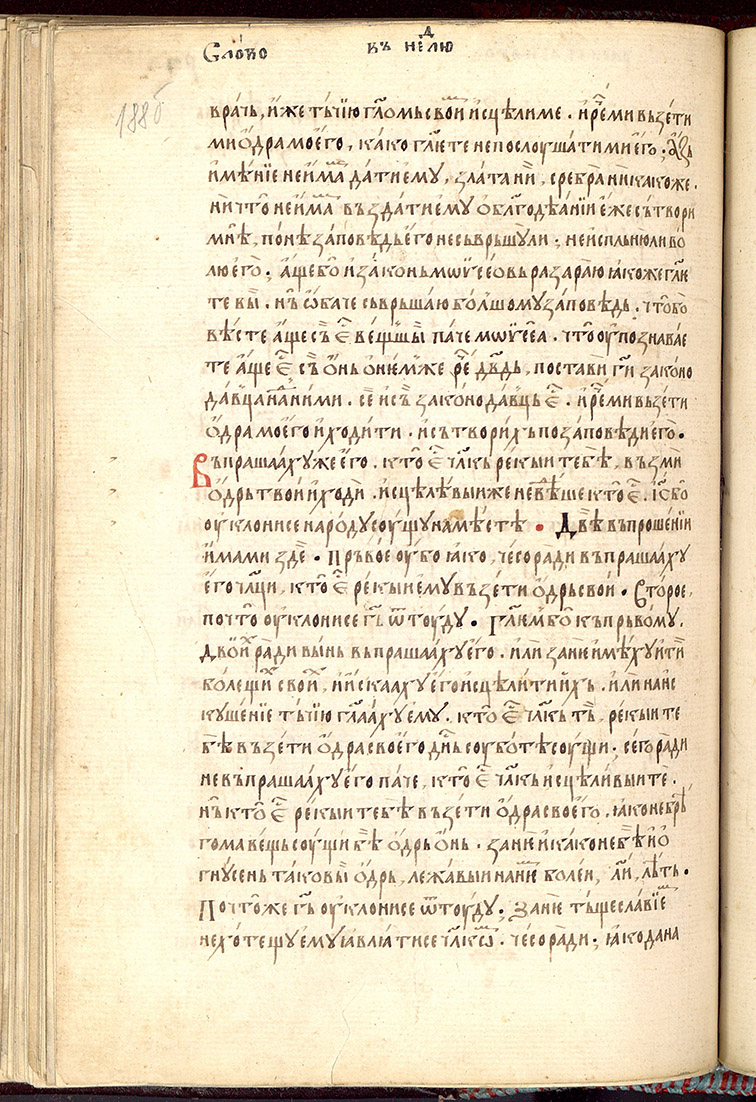 Сло́во въ не́лю д
188б
врачь, и́же тъ́чїю гл҃омь свои́ и҆сцѣ́лиме. и҆ре́ми въꙁе́ти
ми ѻ҆́дра моего̀, ка́ко гл҃ете непослоу́шатимиего̀; а҆́ꙁь
и҆мѣ́нїе неи҆́ма да́тиему, ꙁла́та ни̏, сребра̀ никакоже.
ни́что̀ неи҆́ма въꙁда́тиему ѻ҆ бл҃годѣа́нїи е҆́же сътвори
мнѣ̀, по́нѣ ꙁа́повѣдь его̀ несъвръшу́ли. неи҆спльню́ли во
лю е҆го̀; а҆́ще бо̀ и҆ ꙁако́нь мѡѷсе́ѡвь раꙁара́ю ꙗ҆́коже гл҃е
те вы̏. нъ̏ ѻ҆ба́че съвръша́ю бо́лшому ꙁа́повѣдь. что̀бо
вѣ́сте а҆́ще съ̏ е҆с̑ ве́щшїы па́че мѡѷсе́а. что̀ оу҆поꙁнава́е
те а҆́ще е҆с̑ съ̏ ѻ҆́нь ѻ҆ не́мже ре́ дв҃дь, поста́ви ги҃ ꙁако́но
да́вца на́ ни́ми. се̏ и҆ съ̏ ꙁаконода́вць е҆с̑. и҆ ре́ми въꙁе́ти
ѻ҆́дра моего̀ и҆ ходи́ти. и҆ сътвори́хь по ꙁа́повѣди е҆го̀.
Въпраша́аху же е҆го̀. кто̀ е҆с̑ чл҃кь рекы́и тебѣ̀, въꙁми̏
ѻ҆́дрь тво́и и҆ ходи̏. и҆сцѣлѣ́выи же не вѣ́ше кто̀ е҆с̑. і҆с҃ бо̀
оу҆клони́се наро́ду соу́щу на мѣ́стѣ. Двѣ̏ въпроше́нїи
и҆́мами ꙁдѐ. Пръ́вое оу҆́бо ꙗ҆́ко, чесора́ди въпраша́аху
е҆го̀ чл҃ци, кто̀ е҆с̑ рекы́и е҆му въꙁе́ти ѻ҆́дрь сво́и. Второ́е,
почто̀ оу҆клони́се гь҃ ѿтоу́ду. Гл҃емь бо̀ къ пръво́му.
дво́и ра́ди ви́нь въпраша́аху е҆го̀. и҆лѝ ꙁанѐ и҆мѣ́ху и҆тїи̏
боле́щи свои́, и҆ и҆ска́аху е҆го̀ и҆сцѣли́ти и҆́хь. и҆лѝ на и҆с
куше́нїе тъ́чїю гл҃а́аху е҆му. кто̀ е҆с̑ чл҃кь тъ̏, рекы́и те
бѣ̀ въꙁе́ти ѻ҆́дра своего̀ дн҃ь соубо́тѣ соу́щи; сего̀ ра́ди
не въпраша́аху е҆го̀ па́че, кто̀ е҆с̑ чл҃кь и҆сцѣли́выи те.
нъ̏ кто̀ е҆с̑ рекы́и тебѣ̀ въꙁе́ти ѻ҆́дра своего̀. ꙗ҆́ко небрѣ́
гома ве́щь соу́щи бѣ̀ ѻ҆́дрь ѻ҆́нь. ꙁанѐ и҆ ка́ко не бѣ̀ и҆ ѻ҆
гну́сень таковы̏ ѻ҆́дрь, лежа́выи на не́ болѐн, л҃и, лѣ́ть.
Почто́же гь҃ оу҆клони́се ѿтоу́ду; Ꙁанѐ тъщесла́вїе
не хоте́шу е҆му ꙗ҆вля́тисе чл҃кѡ́. чесора́ди; ꙗ҆́ко да на